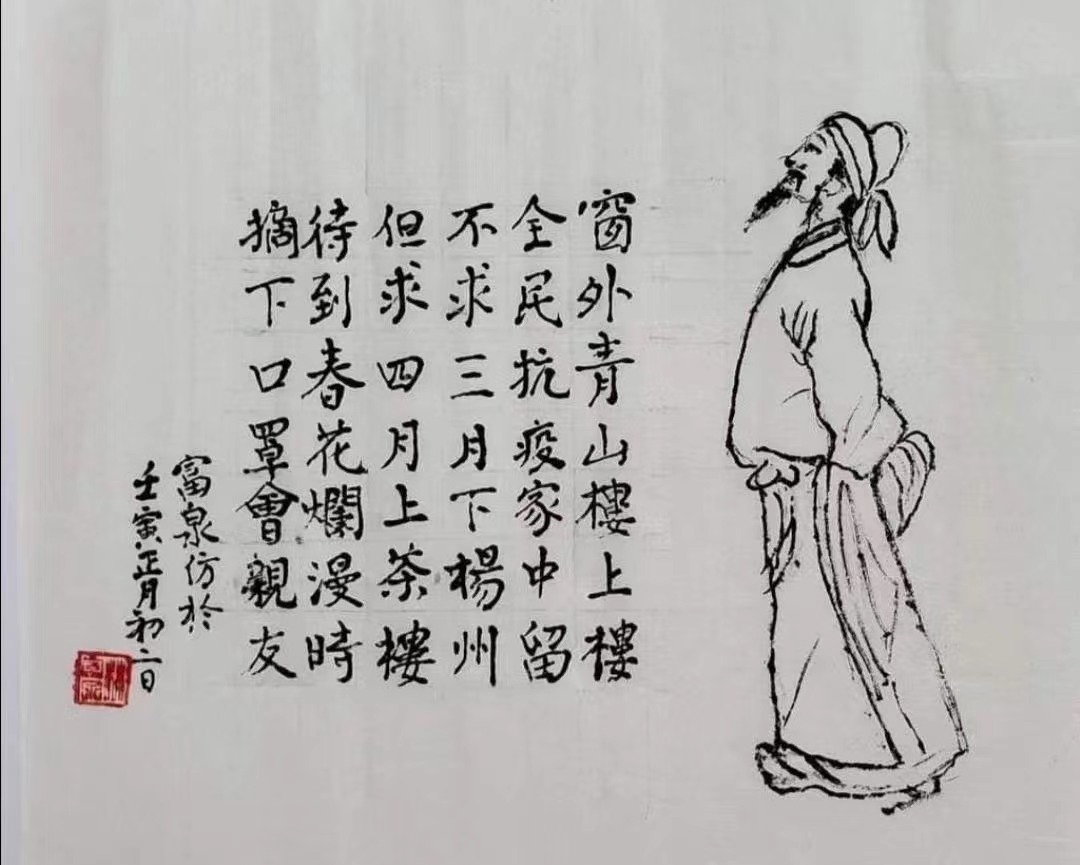 窗外青山樓上樓
全民抗疫家中留
不求三月下楊州
但求四月上茶樓
待到春花爛漫時
摘下口罩會親友
富泉仿於
壬寅正月初二日